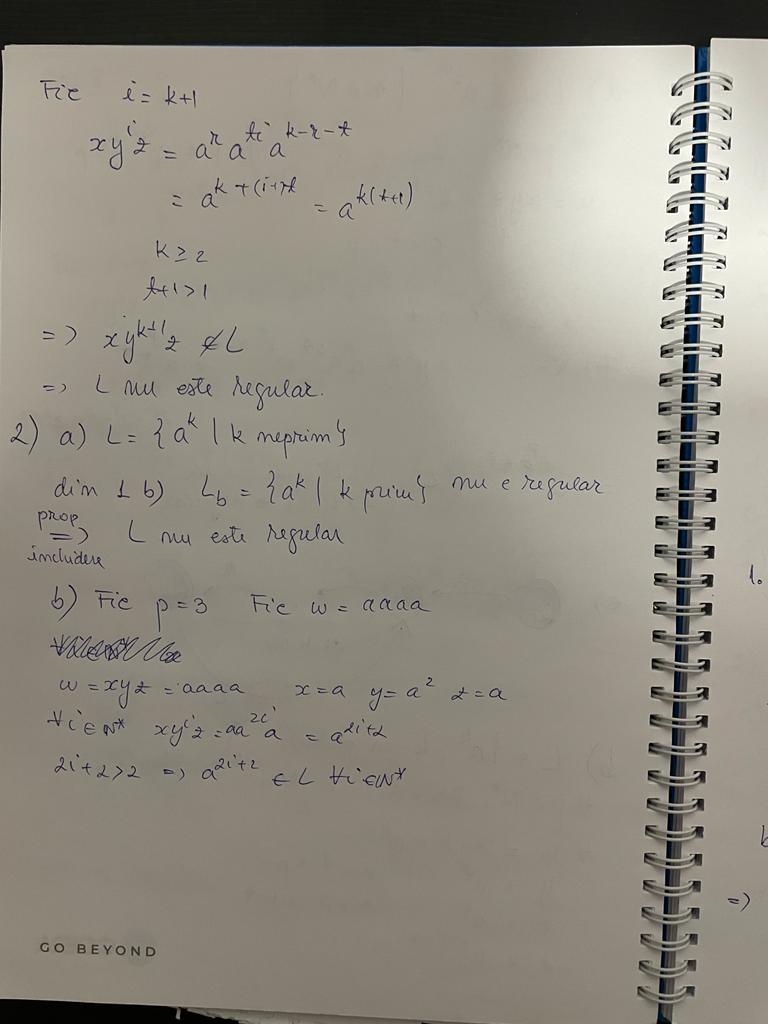 Fie i = k+1
xyⁱz = aʳ aᵗⁱ a^{k-r-t}
= a^{k+(i-1)t} = a^{k(t+1)}
k ≥ 2
t+1 > 1
=> xy^{k+1}z ∉ L
=> L nu este regular.
2) a) L = {aᵏ | k neprim}
din 1 b) L_b = {aᵏ | k prim} nu e regular
prop
=> L nu este regular
includere
b) Fie p = 3 Fie w = aaaa
w = xyz = aaaa x = a y = a² z = a
∀i ∈ N* xyⁱz = aa²ⁱa = a^{2i+2}
2i+2 > 2 => a^{2i+2} ∈ L ∀i ∈ N*
GO BEYOND
1.
=>